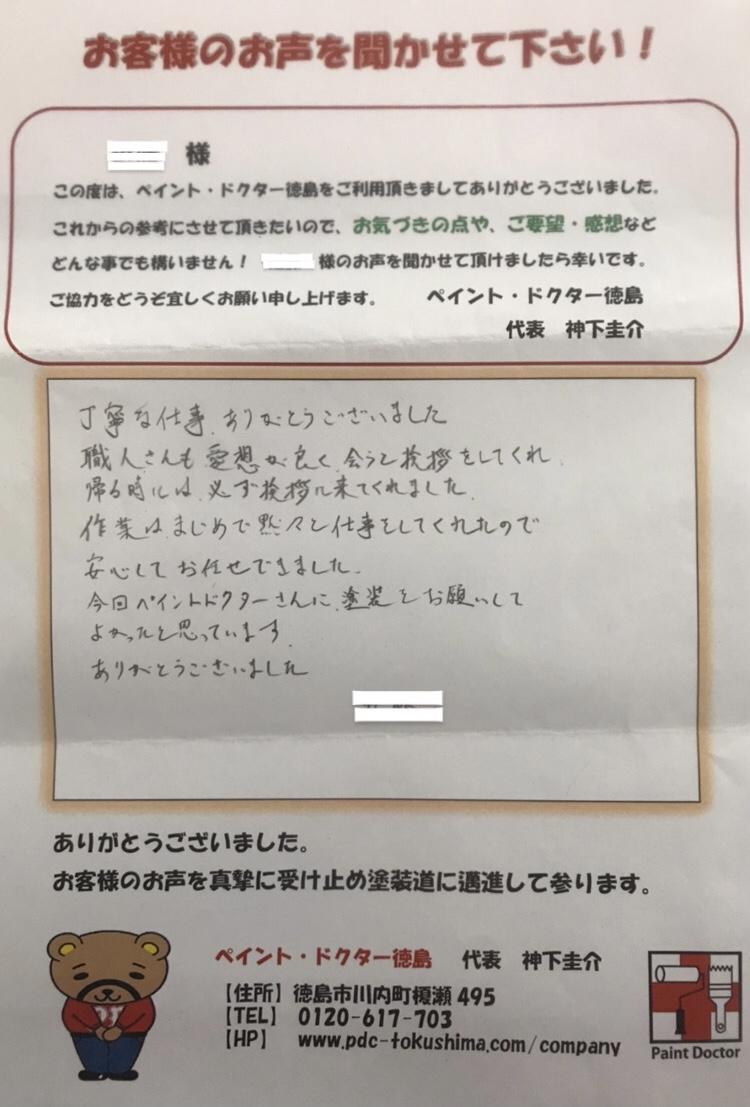 お客様のお声を聞かせて下さい！
様
この度は、ペイント・ドクター徳島をご利用頂きましてありがとうございました。
これからの参考にさせて頂きたいので、お気づきの点や、ご要望・感想など
どんな事でも構いません！ 様のお声を聞かせて頂けましたら幸いです。
ご協力をどうぞ宜しくお願い申し上げます。 ペイント・ドクター徳島
代表 神下圭介
丁寧な仕事、ありがとうございました
職人さんも愛想が良く、会うと挨拶をしてくれ、
帰る時には、必ず挨拶に来てくれました。
作業は、まじめで黙々と仕事をしてくれたので
安心して お任せできました。
今回ペイントドクターさんに、塗装をお願いして
よかったと思っています。
ありがとうございました
ありがとうございました。
お客様のお声を真摯に受け止め塗装道に邁進して参ります。
ペイント・ドクター徳島 代表 神下圭介
【住所】 徳島市川内町榎瀬 495
【TEL】 0120-617-703
【HP】 www.pdc-tokushima.com/company
Paint Doctor